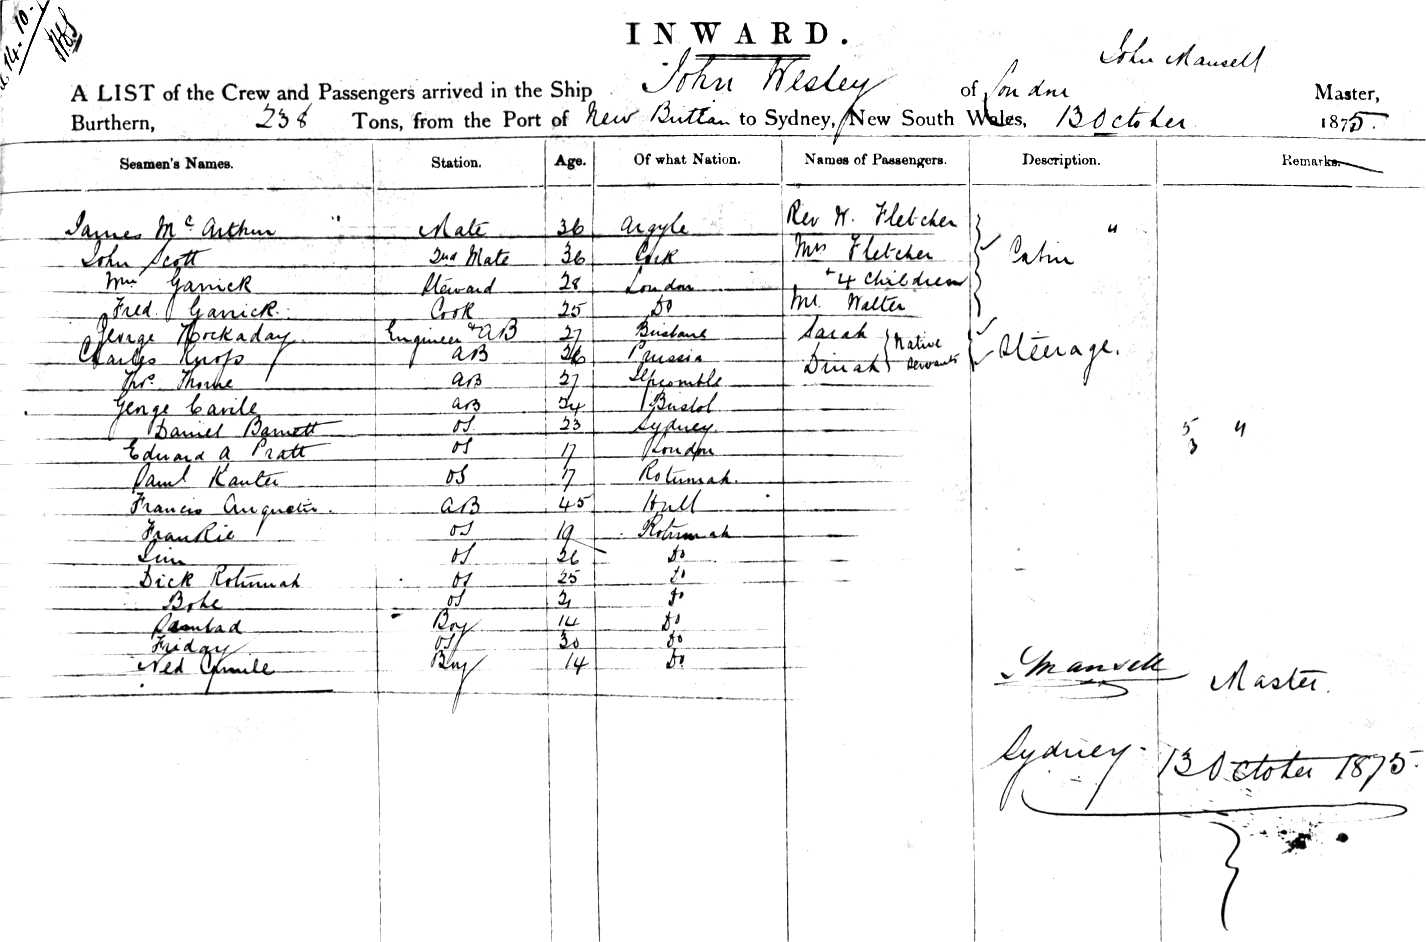 14. 10.
INWARD.
John Mansell
A LIST of the Crew and Passengers arrived in the Ship John Wesley of London Master,
Burthern, 238 Tons, from the Port of New Brittan to Sydney, New South Wales, 13 October 1875.
Seamen's Names. Station. Age. Of what Nation. Names of Passengers. Description. Remarks.
James McArthur " Mate 36 Argyle Rev W. Fletcher "
John Scott 2nd Mate 36 Cork Mrs Fletcher Cabin
Wm Garrick Steward 28 London + 4 Children
Fred Garrick. Cook 25 Do Mr Walter
George Hockaday Engineer & AB 27 Brisbane Sarah Native
Charles Knops AB 26 Prussia Dinah Servants Steerage.
Thos Thorne AB 27 Ilfracomble
George Carile AB 24 Bristol
Daniel Barnett OS 23 Sydney 5 "
Edward A Pratt OS 17 London 3
Paul Kanter OS 17 Rotumah.
Francis Augustin. AB 45 Hull
Frankie OS 19 Rotumah
Jim OS 26 Do
Dick Rotumah OS 25 Do
Bohe OS 21 Do
Boy 14 Do
Friday OS 30 Do
Ned Boy 14 Do
JMansell Master.
Sydney 13 October 1875.